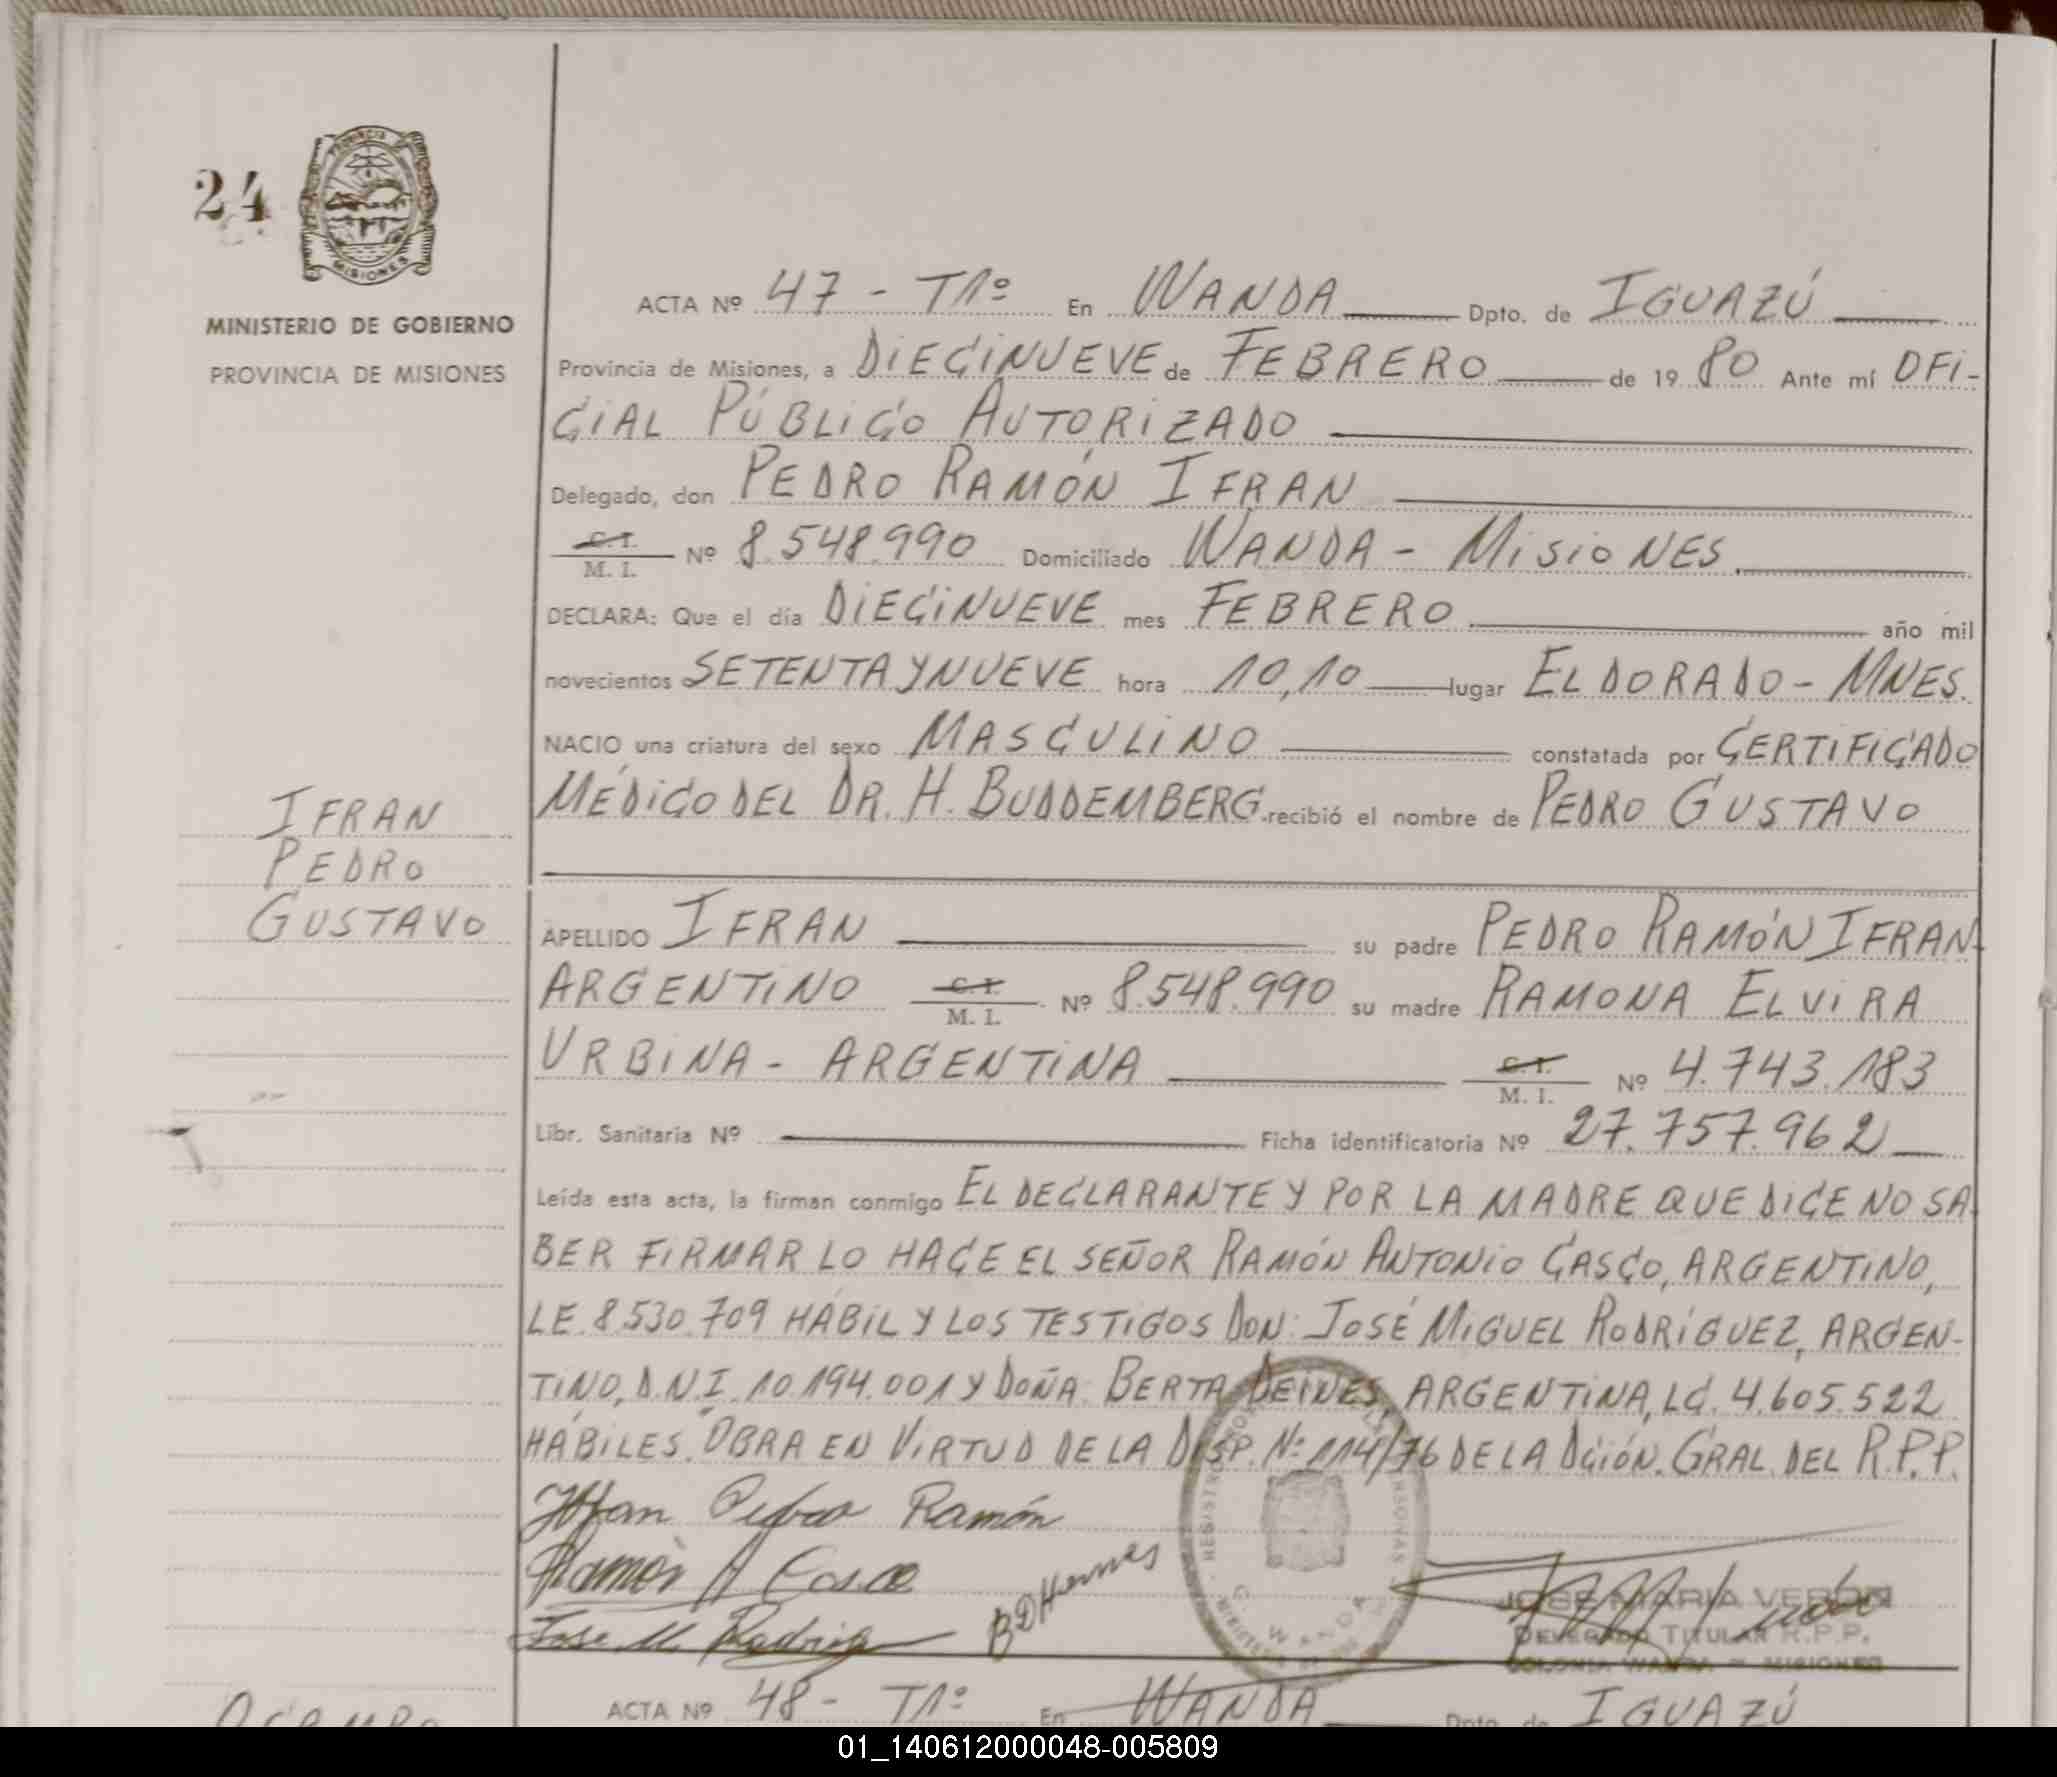 24
PROVINCIA
MISIONES
MINISTERIO DE GOBIERNO
PROVINCIA DE MISIONES
ACTA Nº 47 - T1º En WANDA Dpto. de IGUAZÚ
Provincia de Misiones, a DIECINUEVE de FEBRERO de 19 80 Ante mí OFI-
CIAL PÚBLICO AUTORIZADO
Delegado, don PEDRO RAMÓN IFRAN
C. I. M. I. Nº 8.548.990 Domiciliado WANDA - MISIONES
DECLARA: Que el día DIECINUEVE mes FEBRERO año mil
novecientos SETENTA Y NUEVE hora 10,10 lugar ELDORADO - MNES.
NACIO una criatura del sexo MASCULINO constatada por CERTIFICADO
MÉDICO DEL DR. H. BUDDEMBERG. recibió el nombre de PEDRO GUSTAVO
IFRAN
PEDRO
GUSTAVO
APELLIDO IFRAN su padre PEDRO RAMÓN IFRAN-
ARGENTINO C. I. M. I. Nº 8.548.990 su madre RAMONA ELVIRA
URBINA - ARGENTINA C. I. M. I. Nº 4.743.183
Libr. Sanitaria Nº Ficha identificatoria Nº 27.757.962
Leída esta acta, la firman conmigo EL DECLARANTE Y POR LA MADRE QUE DICE NO SA-
BER FIRMAR LO HACE EL SEÑOR RAMÓN ANTONIO CASCO, ARGENTINO,
LE. 8.530.709 HÁBIL Y LOS TESTIGOS DON: JOSÉ MIGUEL RODRÍGUEZ, ARGEN-
TINO, D.N.I. 10.194.001 Y DOÑA: BERTA DEINES, ARGENTINA, LC. 4.605.522
HÁBILES. OBRA EN VIRTUD DE LA DISP. Nº 114/76 DE LA DCIÓN. GRAL. DEL R.P.P.
Ifran Pedro Ramón
Ramón A Casco
Jose M. Rodrigu
WANDA
JOSE MARIA VERON
DELEGADO TITULAR R.P.P.
COLONIA WANDA - MISIONES
ACTA Nº 48 - T1º En WANDA Dpto. de IGUAZÚ
OCAMPO
01_140612000048-005809